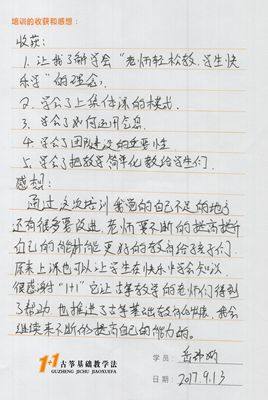 培训的收获和感想：
收获：
1. 让我了解学会“老师轻松教，学生快
乐学”的理念；
2. 学会了上集体课的模式
3. 学会了如何运用信息
4. 学会了团队建设的重要性
5. 学会了把教学简单化教给学生们。
感想：
通过这次培训我觉的自己不足的地方
还有很多要改进，老师要不断的提高提升
自己的能力才能更好的教育给孩子们，
原来上课也可以让学生在快乐中学会知识，
很感谢“1+1”它让古筝教学的老师们得到
了帮助，也推进了古筝基础教育的发展，我会
继续来不断的提高自己的能力的。
1+1 古筝基础教学法
GUZHENG JICHU JIAOXUEFA
学员：
日期：2017.9.13